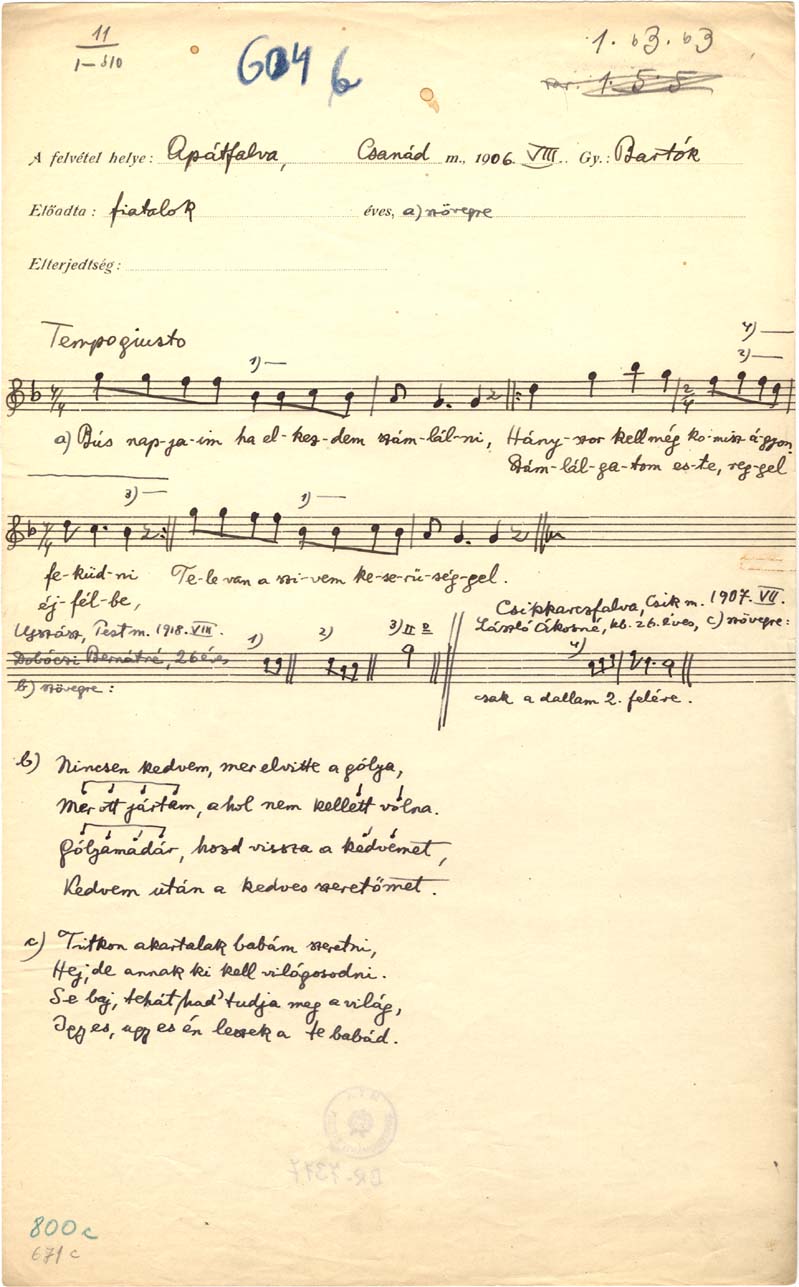 11
I–310
604 b
1. b3. b3
var. 1. 5. 5
A felvétel helye: Apátfalva, Csanád m., 1906. VIII. Gy.: Bartók
Előadta: fiatalok éves, a) szövegre
Elterjedtség:
Tempo giusto
4)
1) 2)
a) Bús nap-ja-im ha el-kez-dem szám-lál-ni, Hány-szor kell még ko-misz á-gyon
Szám-lál-ga-tom es-te, reg-gel
3) 1)
fe-küd-ni Te-le van a szi-vem ke-se-rű-ség-gel.
éj-fél-be,
Ujszász, Pest m. 1918. VIII.
Dobóczi Bernátné, 26 éves
b) szövegre:
1) 2) 3)
Csikkarczfalva, Csik m. 1907. VII.
László Ákosné, kb. 26. éves, c) szövegre:
4)
csak a dallam 2. felére.
b) Nincsen kedvem, mer elvitte a gólya,
Mer ott jártam, ahol nem kellett vólna.
Gólyamadár, hozd vissza a kedvemet,
Kedvem után a kedves szeretőmet.
c) Titkon akartalak babám szeretni,
Hej, de annak ki kell világosodni.
Se baj, tehát had' tudja meg a világ,
Igy es, ugy es én leszek a te babád.
BR-7317
800 c
671 c